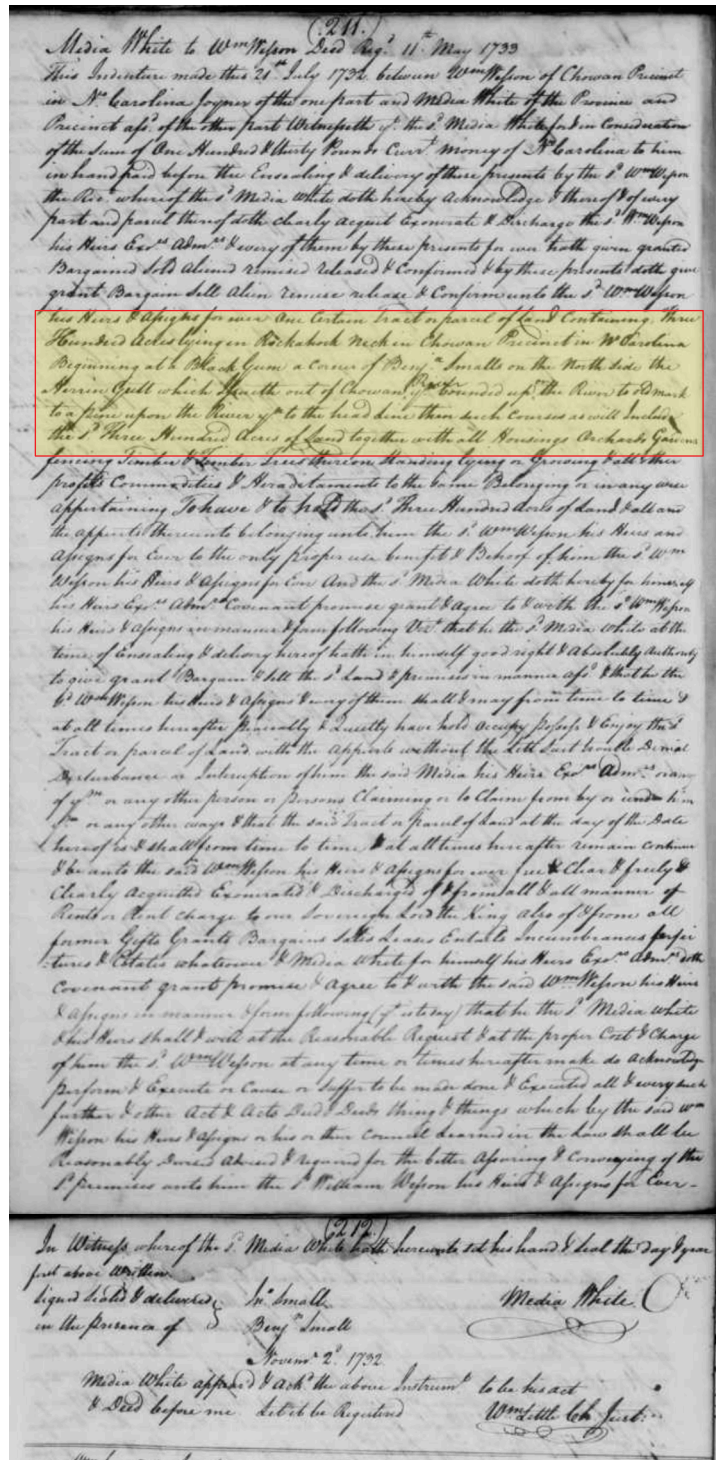 (211.)
Media White to Wm Wesson Deed Regd. 11th May 1733
This Indenture made this 21st July 1732 between Wm Wesson of Chowan Precinct
in No Carolina Joyner of the one part and Media White of the Province and
Precinct afsd. of the other part Witnesseth yt. the sd. Media White for & in Consideration
of the Sum of One Hundred & thirty Pounds Currt. money of No Carolina to him
in hand paid before the Ensealing & delivery of these presents by the sd. Wm Wesson
the Rect. whereof the sd. Media White doth hereby Acknowledge & thereof & of every
part and parcel thereof doth clearly Acquit Exonerate & Discharge the sd. Wm Wesson
his Heirs Exrs. Admrs. & every of them by these presents for ever hath given granted
Bargained Sold Aliened remised released & Confirmed & by these presents doth give
grant Bargain Sell Alien remise release & Confirm unto the sd. Wm Wesson
his Heirs & Assigns for ever One Certain Tract or parcel of Land Containing Three
Hundred Acres lying in Rockahock neck in Chowan Precinct in No Carolina
Beginning at a Black Gum a corner of Benja. Smalls on the North side the
Herrin Gutt which out of Chowan River bounded up the River to old mark
to a pine upon the River yn. to the head line then such Courses as will Include
the sd. Three Hundred Acres of Land together with all Housings Orchards Gardens
fencing Timber & Timber Trees thereon Standing lying or Growing & all other
profits Commodities & Heraditaments to the Same Belonging or in any wise
appertaining To have & to hold the sd. Three Hundred Acres of Land & all and
the appurts thereunto belonging unto him the sd. Wm Wesson his Heirs and
Assigns for Ever to the only proper use benefit & Behoof of him the sd. Wm
Wesson his Heirs & Assigns for Ever And the sd. Media White doth hereby for himself
his Heirs Exrs. Admrs. Covenant promise grant & Agree to & with the sd. Wm Wesson
his Heirs & Assigns in manner & form following Vizt. that he the sd. Media White at the
time of Ensealing & delivery hereof hath in himself good right & Absolutely Authority
to give grant Bargain & Sell the sd. Land & premises in manner afsd. & that he the
sd. Wm Wesson his Heirs & Assigns & every of them shall & may from time to time &
at all times hereafter peaceably & Quietly have hold occupy possess & Enjoy the sd.
Tract or parcel of Land with the Appurts without the Lett Suit trouble Denial
Disturbance or Interuption of him the said Media his Heirs Exrs. Admrs. or any
of ym. or any other person or persons Claiming or to Claim from by or under him
ym. or any other ways & that the said Tract or parcel of Land at the day of the Date
hereof is & shall from time to time & at all times hereafter remain continue
& be unto the said Wm Wesson his Heirs & Assigns for ever free & Clear & freely &
Clearly Acquitted Exonerated & Discharged of & from all & all manner of
Rents or Rent charge to our Sovereign Lord the King also of & from all
former Gifts Grants Bargains Sales Leases Entails Incumbrances forfei
-tures & Estates whatsoever & Media White for himself his Heirs Exrs. Admrs. doth
Covenant grant promise & Agree to & with the said Wm Wesson his Heirs
& Assigns in manner & form following (yt. is to say) that he the sd. Media White
& his Heirs shall & will at the Reasonable Request & at the proper Cost & Charge
of him the sd. Wm Wesson at any time or times hereafter make do Acknowledge
perform & Execute or Cause or suffer to be made done & Executed all & every such
further & other Act & Acts Deed & Deeds thing & things which by the said Wm
Wesson his Heirs & Assigns or his or their Council Learned in the Law shall be
Reasonably Devised Advised & required for the better Assuring & Conveying of the
sd. premises unto him the sd. William Wesson his Heirs & Assigns for Ever -
(212.)
In Witness whereof the sd. Media White hath hereunto set his hand & seal the day & year
first above written
Signed Sealed & delivered Jno. Small Media White
in the presence of Benja. Small
Novemr. 2d. 1732
Media White appeard & Ackd. the above Instrumt. to be his act
& Deed before me Let it be Registered Wm Little Ch Just.